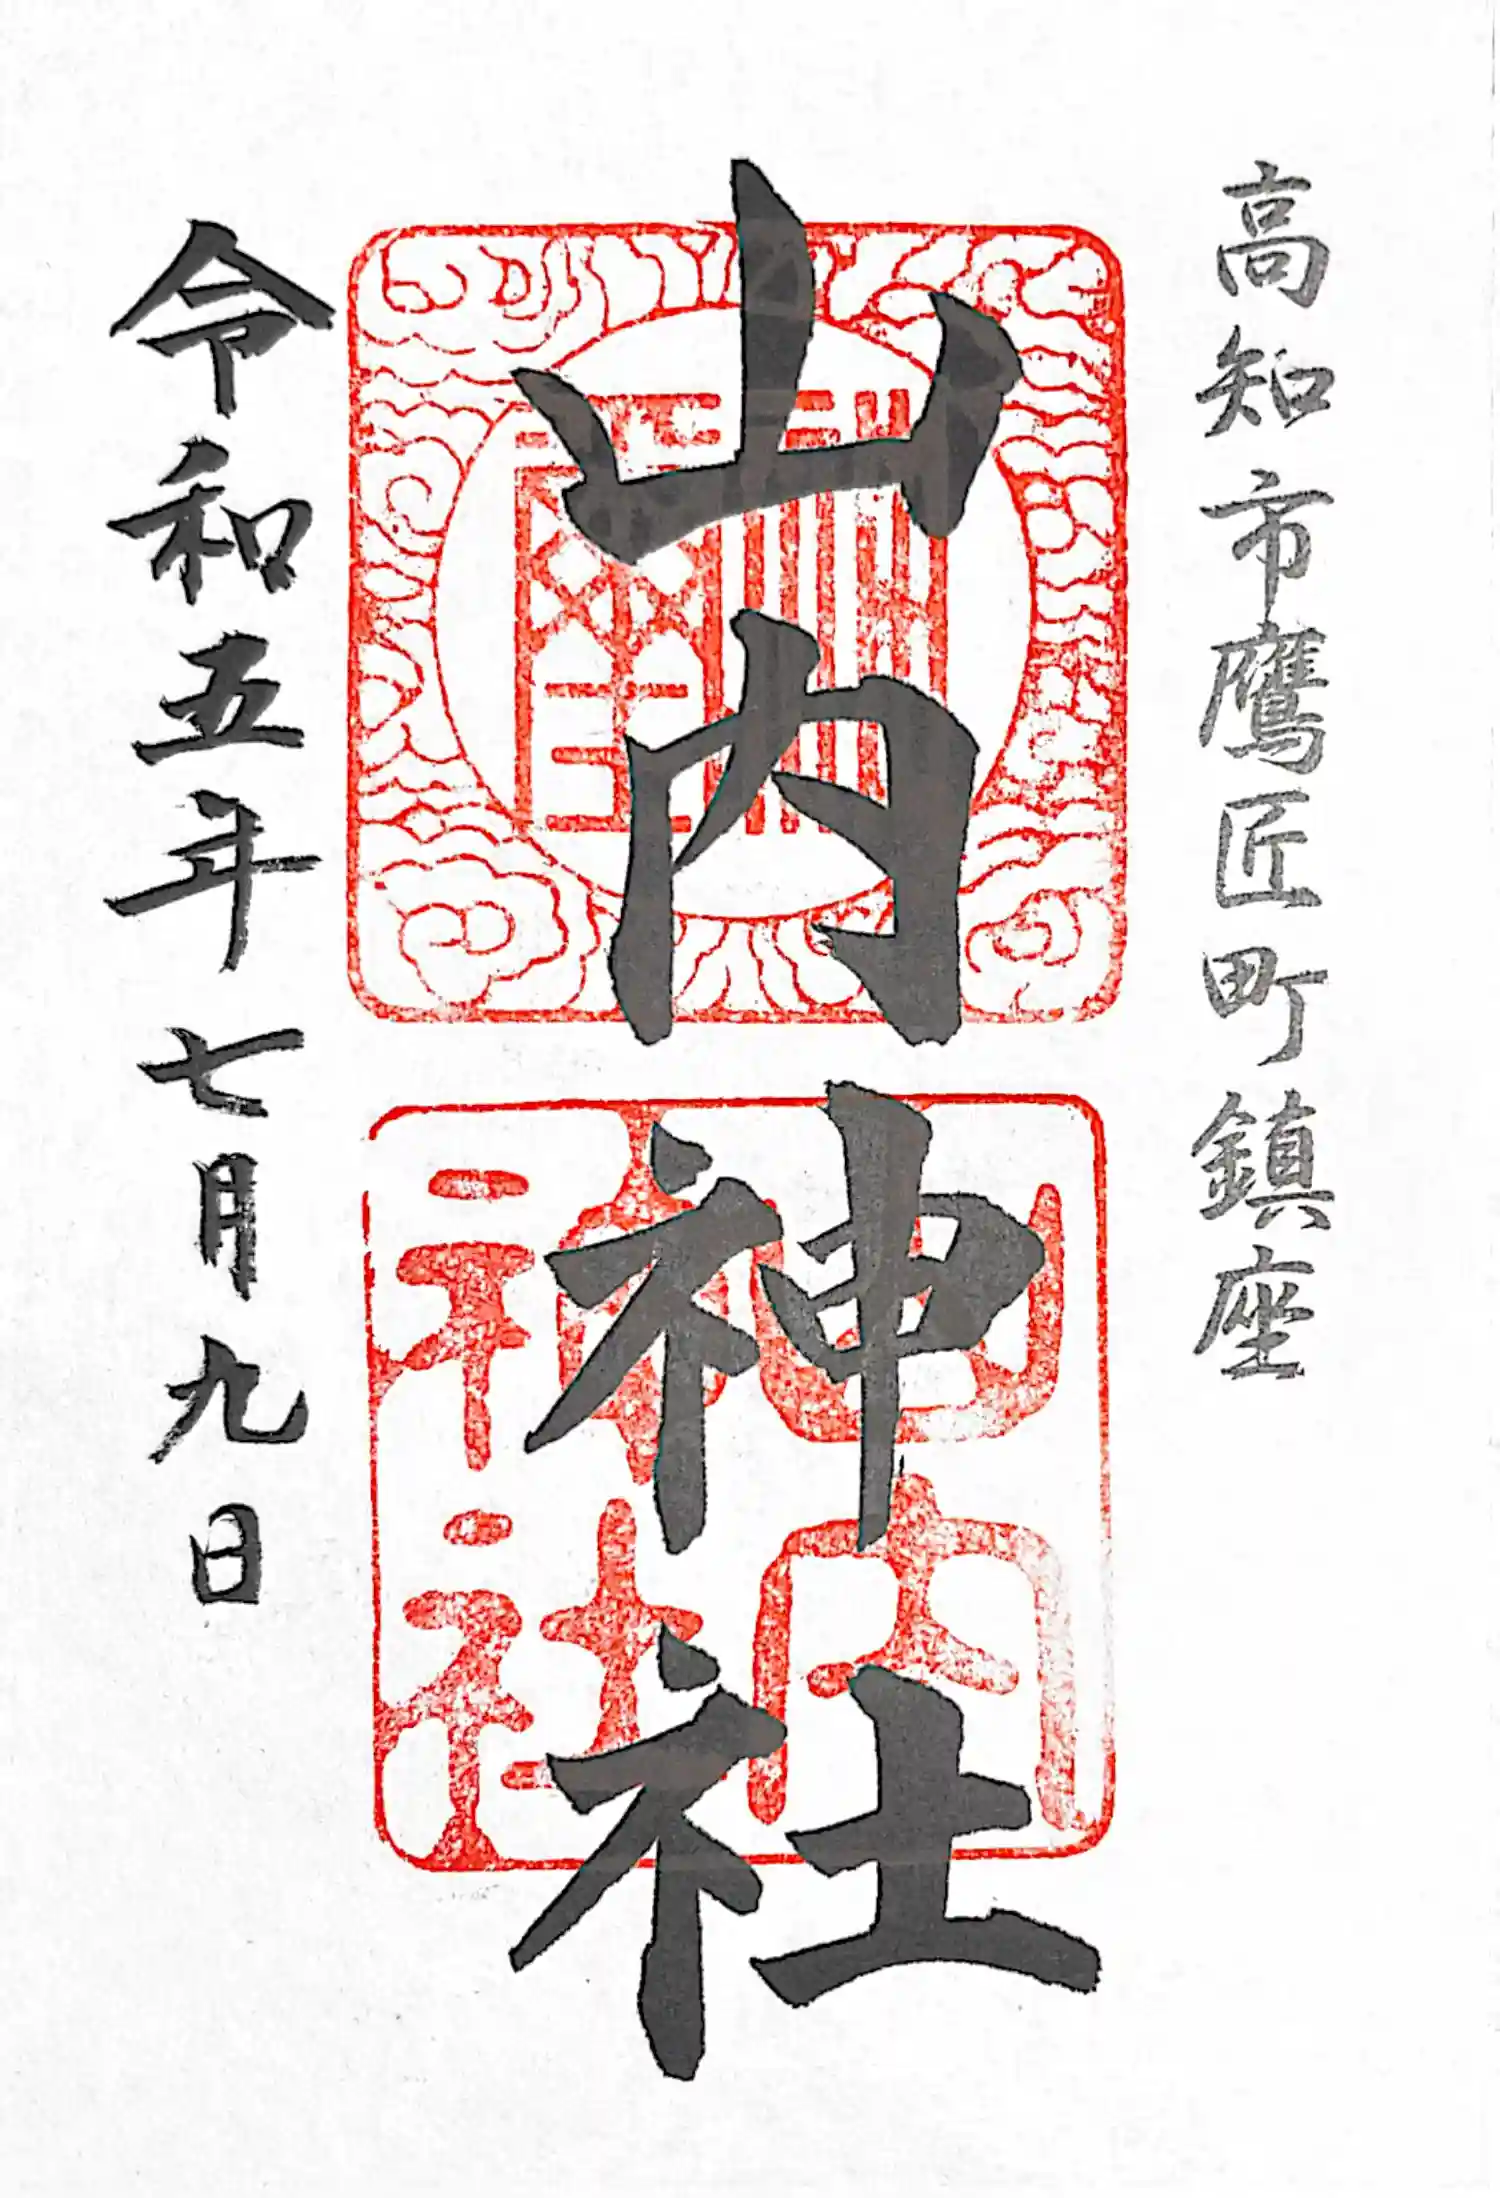 高知市鷹匠町鎮座
山内神社
山内
神社
令和五年七月九日